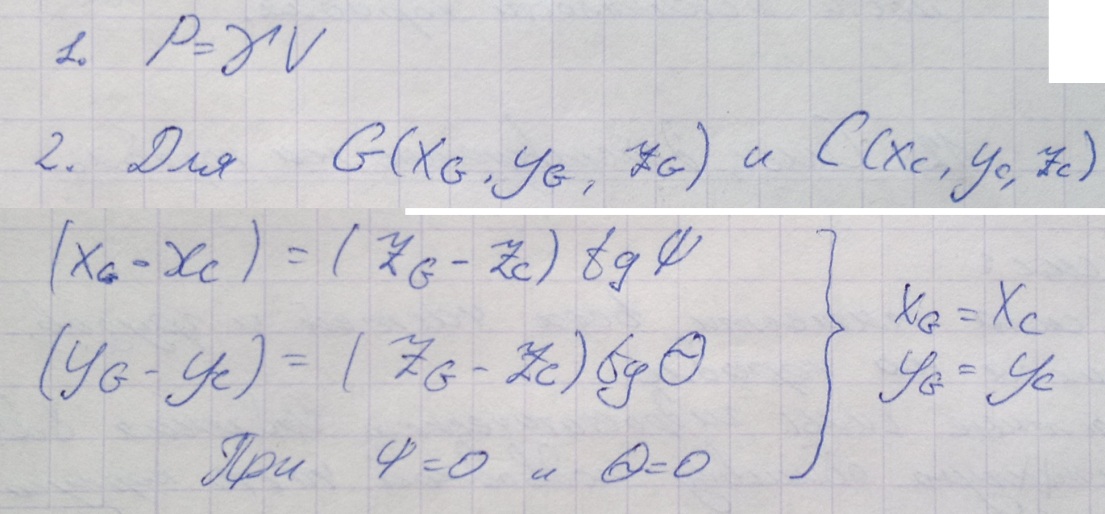 1. P=γV
2. Для G(x_G, y_G, z_G) и C(x_C, y_C, z_C)
(x_G - x_C) = (z_G - z_C) tg ψ
(y_G - y_C) = (z_G - z_C) tg Θ
При ψ=0 и Θ=0
}
x_G = x_C
y_G = y_C